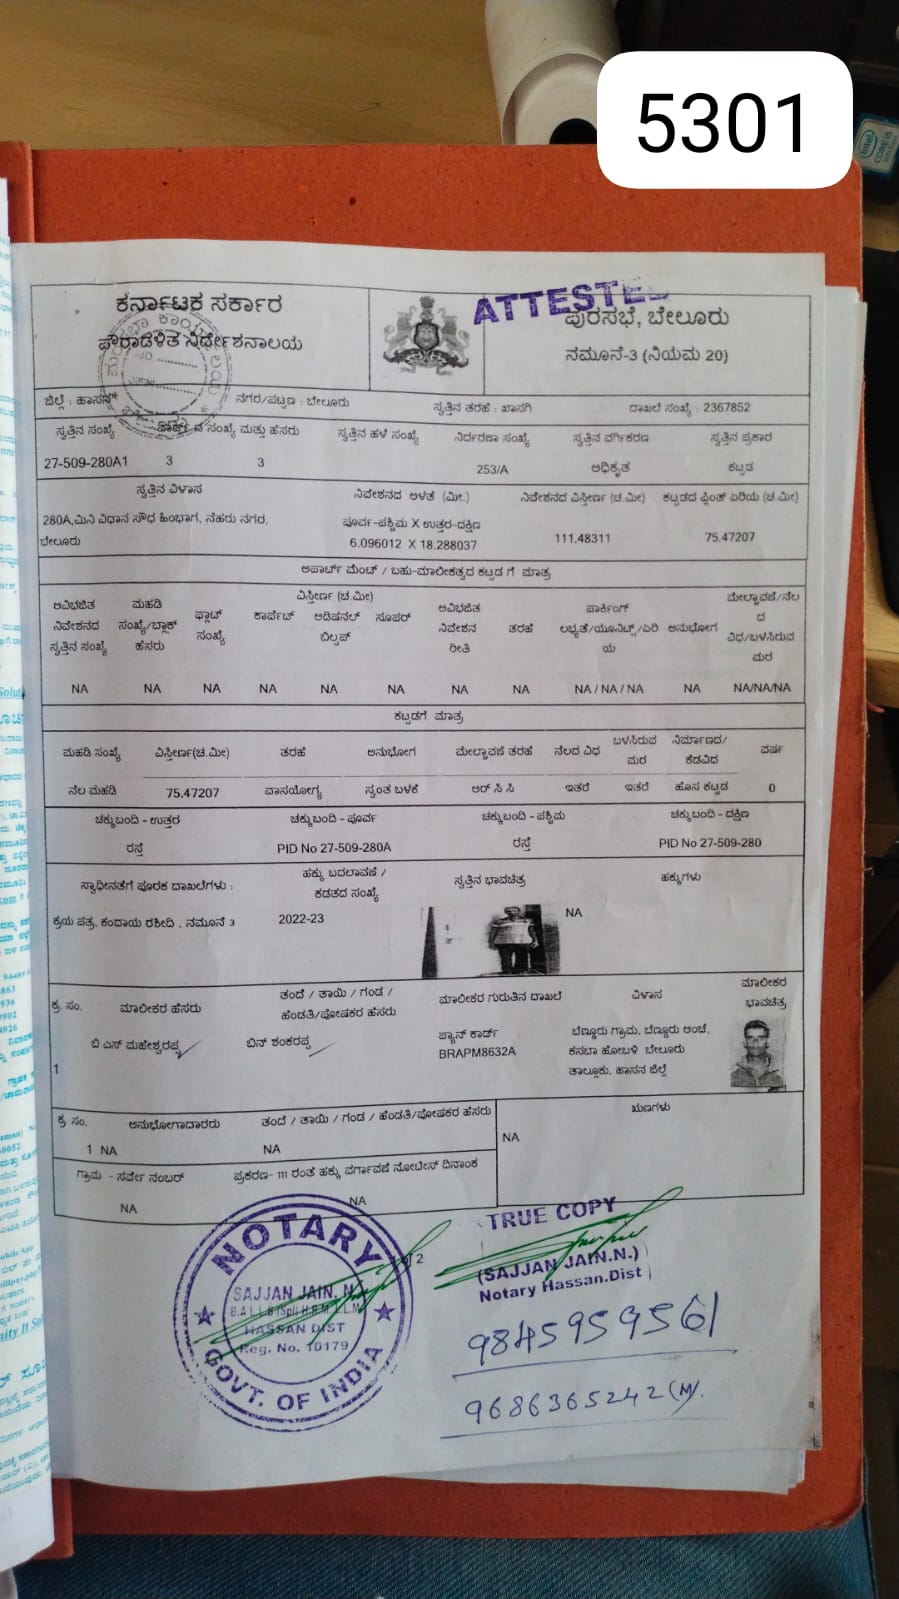 5301
ಕರ್ನಾಟಕ ಸರ್ಕಾರ
ಪೌರಾಡಳಿತ ನಿರ್ದೇಶನಾಲಯ
ATTESTED
ಪುರಸಭೆ, ಬೇಲೂರು
ನಮೂನೆ-3 (ನಿಯಮ 20)
ಜಿಲ್ಲೆ : ಹಾಸನ ನಗರ/ಪಟ್ಟಣ : ಬೇಲೂರು ಸ್ವತ್ತಿನ ತರಹೆ : ಖಾಸಗಿ ದಾಖಲೆ ಸಂಖ್ಯೆ : 2367852
ಸ್ವತ್ತಿನ ಸಂಖ್ಯೆ ಸಂಖ್ಯೆ ಮತ್ತು ಹೆಸರು ಸ್ವತ್ತಿನ ಹಳೆ ಸಂಖ್ಯೆ ನಿರ್ದರಣಾ ಸಂಖ್ಯೆ ಸ್ವತ್ತಿನ ವರ್ಗಿಕರಣ ಸ್ವತ್ತಿನ ಪ್ರಕಾರ
27-509-280A1 3 3 253/A ಅಧಿಕೃತ ಕಟ್ಟಡ
ಸ್ವತ್ತಿನ ವಿಳಾಸ ನಿವೇಶನದ ಅಳತೆ (ಮೀ.) ನಿವೇಶನದ ವಿಸ್ತೀರ್ಣ (ಚ.ಮೀ) ಕಟ್ಟಡದ ಪ್ಲಿಂತ್ ಏರಿಯ (ಚ.ಮೀ)
280A,ಮಿನಿ ವಿಧಾನ ಸೌಧ ಹಿಂಭಾಗ, ನೆಹರು ನಗರ, ಬೇಲೂರು
ಪೂರ್ವ-ಪಶ್ಚಿಮ X ಉತ್ತರ-ದಕ್ಷಿಣ
6.096012 X 18.288037 111.48311 75.47207
ಅಪಾರ್ಟ್ ಮೆಂಟ್ / ಬಹು-ಮಾಲೀಕತ್ವದ ಕಟ್ಟಡ ಗೆ ಮಾತ್ರ
ವಿಸ್ತೀರ್ಣ (ಚ.ಮೀ)
ಅವಿಭಜಿತ ನಿವೇಶನದ ಸ್ವತ್ತಿನ ಸಂಖ್ಯೆ ಮಹಡಿ ಸಂಖ್ಯೆ/ಬ್ಲಾಕ್ ಹೆಸರು ಫ್ಲಾಟ್ ಸಂಖ್ಯೆ ಕಾರ್ಪೆಟ್ ಅಡಿಷನಲ್ ಬಿಲ್ಟಪ್ ಸೂಪರ್ ಅವಿಭಜಿತ ನಿವೇಶನ ರೀತಿ ತರಹೆ ಪಾರ್ಕಿಂಗ್ ಲಭ್ಯತೆ/ಯೂನಿಟ್ಸ್/ಏರಿಯ ಅನುಭೋಗ ಮೇಲ್ಛಾವಣೆ/ನೆಲದ ವಿಧ/ಬಳಸಿರುವ ಮರ
NA NA NA NA NA NA NA NA NA / NA / NA NA NA/NA/NA
ಕಟ್ಟಡಗೆ ಮಾತ್ರ
ಮಹಡಿ ಸಂಖ್ಯೆ ವಿಸ್ತೀರ್ಣ(ಚ.ಮೀ) ತರಹೆ ಅನುಭೋಗ ಮೇಲ್ಛಾವಣೆ ತರಹೆ ನೆಲದ ವಿಧ ಬಳಸಿರುವ ಮರ ನಿರ್ಮಾಣದ/ಕೆಡವಿದ ವರ್ಷ
ನೆಲ ಮಹಡಿ 75.47207 ವಾಸಯೋಗ್ಯ ಸ್ವಂತ ಬಳಕೆ ಆರ್ ಸಿ ಸಿ ಇತರೆ ಇತರೆ ಹೊಸ ಕಟ್ಟಡ 0
ಚಕ್ಕುಬಂದಿ - ಉತ್ತರ ಚಕ್ಕುಬಂದಿ - ಪೂರ್ವ ಚಕ್ಕುಬಂದಿ - ಪಶ್ಚಿಮ ಚಕ್ಕುಬಂದಿ - ದಕ್ಷಿಣ
ರಸ್ತೆ PID No 27-509-280A ರಸ್ತೆ PID No 27-509-280
ಸ್ವಾಧೀನತೆಗೆ ಪೂರಕ ದಾಖಲೆಗಳು : ಹಕ್ಕು ಬದಲಾವಣೆ / ಕಡತದ ಸಂಖ್ಯೆ ಸ್ವತ್ತಿನ ಭಾವಚಿತ್ರ ಹಕ್ಕುಗಳು
ಕ್ರಯ ಪತ್ರ, ಕಂದಾಯ ರಶೀದಿ , ನಮೂನೆ 3 2022-23 NA
ಕ್ರ. ಸಂ. ಮಾಲೀಕರ ಹೆಸರು ತಂದೆ / ತಾಯಿ / ಗಂಡ / ಹೆಂಡತಿ/ಪೋಷಕರ ಹೆಸರು ಮಾಲೀಕರ ಗುರುತಿನ ದಾಖಲೆ ವಿಳಾಸ ಮಾಲೀಕರ ಭಾವಚಿತ್ರ
1 ಬಿ ಎಸ್ ಮಹೇಶ್ವರಪ್ಪ ಬಿನ್ ಶಂಕರಪ್ಪ ಪ್ಯಾನ್ ಕಾರ್ಡ್ BRAPM8632A ಬೆಣ್ಣೂರು ಗ್ರಾಮ, ಬೆಣ್ಣೂರು ಅಂಚೆ, ಕಸಬಾ ಹೋಬಳಿ ಬೇಲೂರು ತಾಲ್ಲೂಕು, ಹಾಸನ ಜಿಲ್ಲೆ
ಕ್ರ. ಸಂ. ಅನುಭೋಗದಾರರು ತಂದೆ / ತಾಯಿ / ಗಂಡ / ಹೆಂಡತಿ/ಪೋಷಕರ ಹೆಸರು ಋಣಗಳು
1 NA NA NA
ಗ್ರಾಮ - ಸರ್ವೆ ನಂಬರ್ ಪ್ರಕರಣ- 111 ರಂತೆ ಹಕ್ಕು ವರ್ಗಾವಣೆ ನೋಟೀಸ್ ದಿನಾಂಕ
NA NA
2
NOTARY
SAJJAN JAIN. N.
HASSAN DIST
Reg. No. 10179
GOVT. OF INDIA
TRUE COPY
(SAJJAN JAIN.N.)
Notary Hassan.Dist
9845959561
9686365242(M).